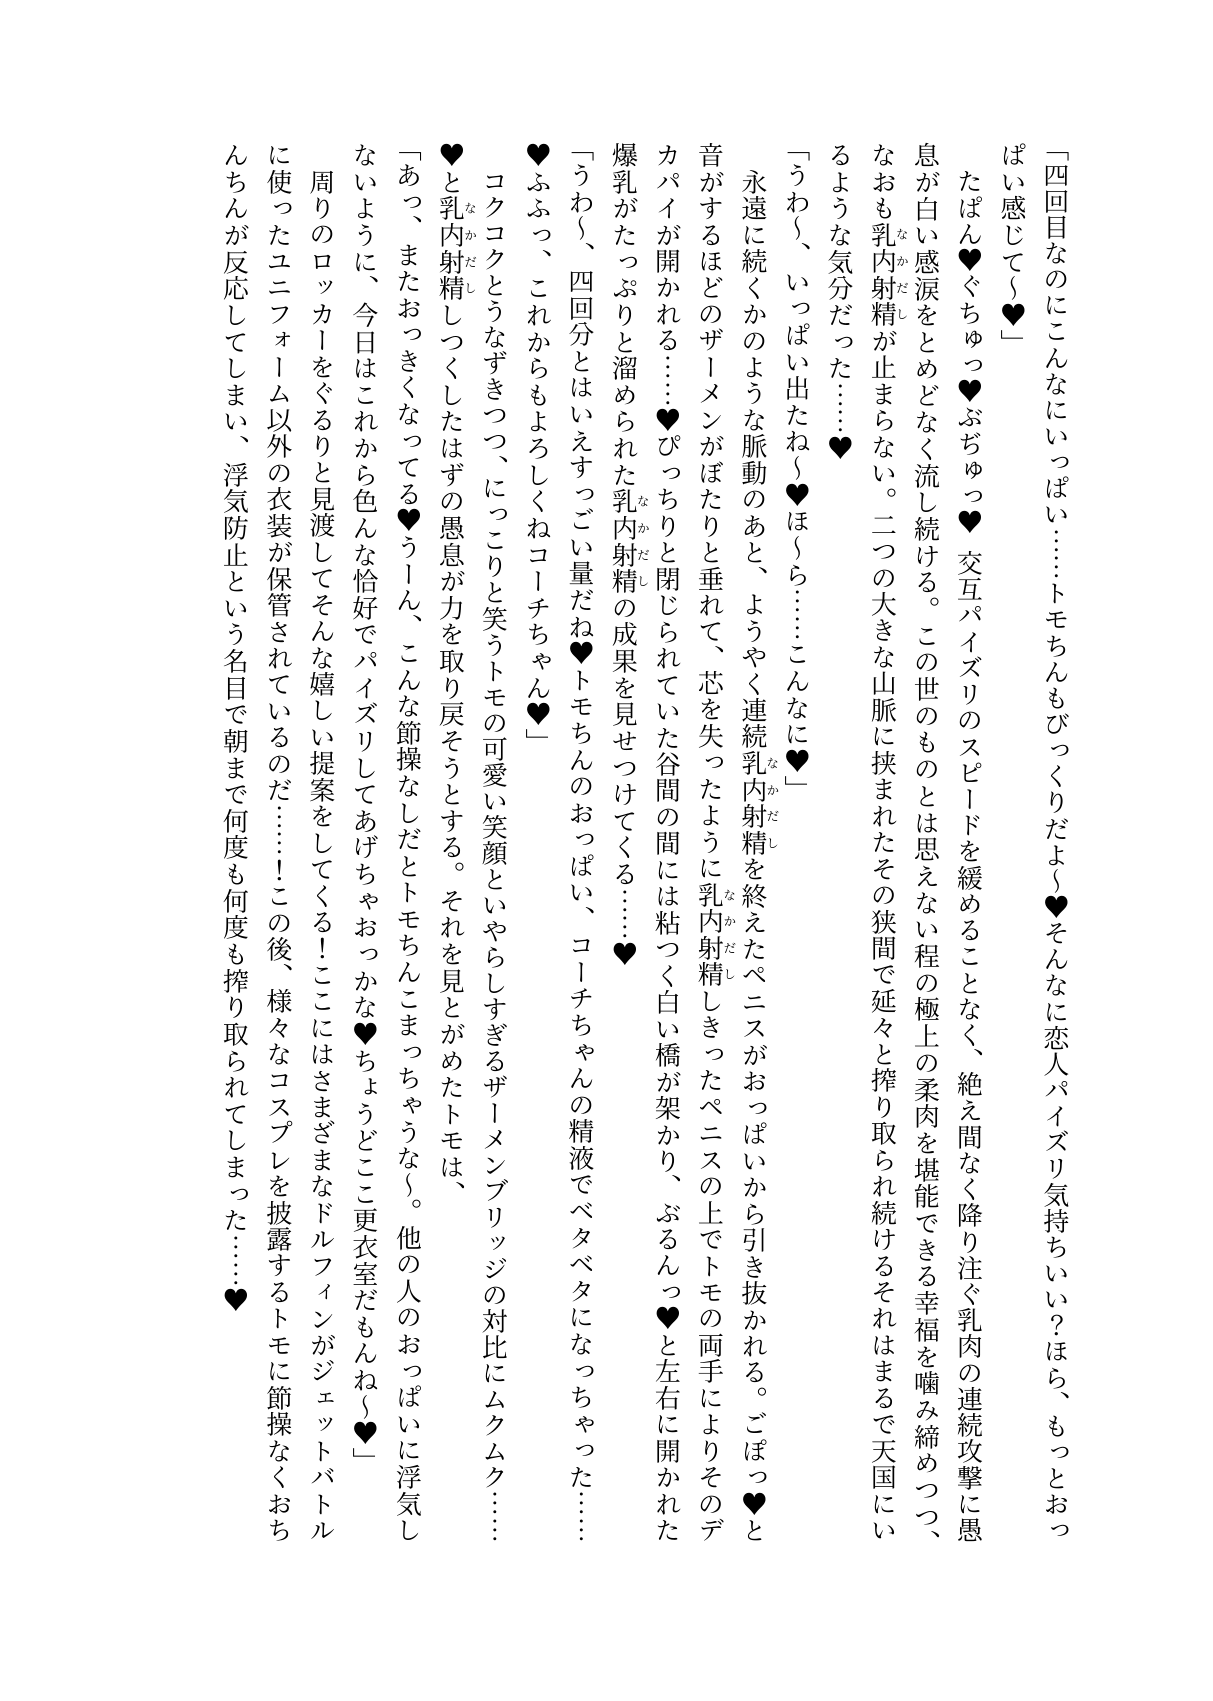 「四回目なのにこんなにいっぱい……トモちんもびっくりだよ〜♥そんなに恋人パイズリ気持ちいい？ほら、もっとおっ
ぱい感じて〜♥」
たぱん♥ぐちゅっ♥ぶぢゅっ♥ 交互パイズリのスピードを緩めることなく、絶え間なく降り注ぐ乳肉の連続攻撃に愚
息が白い感涙をとめどなく流し続ける。この世のものとは思えない程の極上の柔肉を堪能できる幸福を噛み締めつつ、
なおも乳内射精なかだしが止まらない。二つの大きな山脈に挟まれたその狭間で延々と搾り取られ続けるそれはまるで天国にい
るような気分だった……♥
「うわ〜、いっぱい出たね〜♥ほ〜ら……こんなに♥」
永遠に続くかのような脈動のあと、ようやく連続乳内射精なかだしを終えたペニスがおっぱいから引き抜かれる。ごぽっ♥と
音がするほどのザーメンがぼたりと垂れて、芯を失ったように乳内射精なかだししきったペニスの上でトモの両手によりそのデ
カパイが開かれる……♥ぴっちりと閉じられていた谷間の間には粘つく白い橋が架かり、ぶるんっ♥と左右に開かれた
爆乳がたっぷりと溜められた乳内射精なかだしの成果を見せつけてくる……♥
「うわ〜、四回分とはいえすっごい量だね♥トモちんのおっぱい、コーチちゃんの精液でベタベタになっちゃった……
♥ふふっ、これからもよろしくねコーチちゃん♥」
コクコクとうなずきつつ、にっこりと笑うトモの可愛い笑顔といやらしすぎるザーメンブリッジの対比にムクムク……
♥と乳内射精なかだししつくしたはずの愚息が力を取り戻そうとする。それを見とがめたトモは、
「あっ、またおっきくなってる♥うーん、こんな節操なしだとトモちんこまっちゃうな〜。他の人のおっぱいに浮気し
ないように、今日はこれから色んな恰好でパイズリしてあげちゃおっかな♥ちょうどここ更衣室だもんね〜♥」
周りのロッカーをぐるりと見渡してそんな嬉しい提案をしてくる！ここにはさまざまなドルフィンがジェットバトル
に使ったユニフォーム以外の衣装が保管されているのだ……！この後、様々なコスプレを披露するトモに節操なくおち
んちんが反応してしまい、浮気防止という名目で朝まで何度も何度も搾り取られてしまった……♥